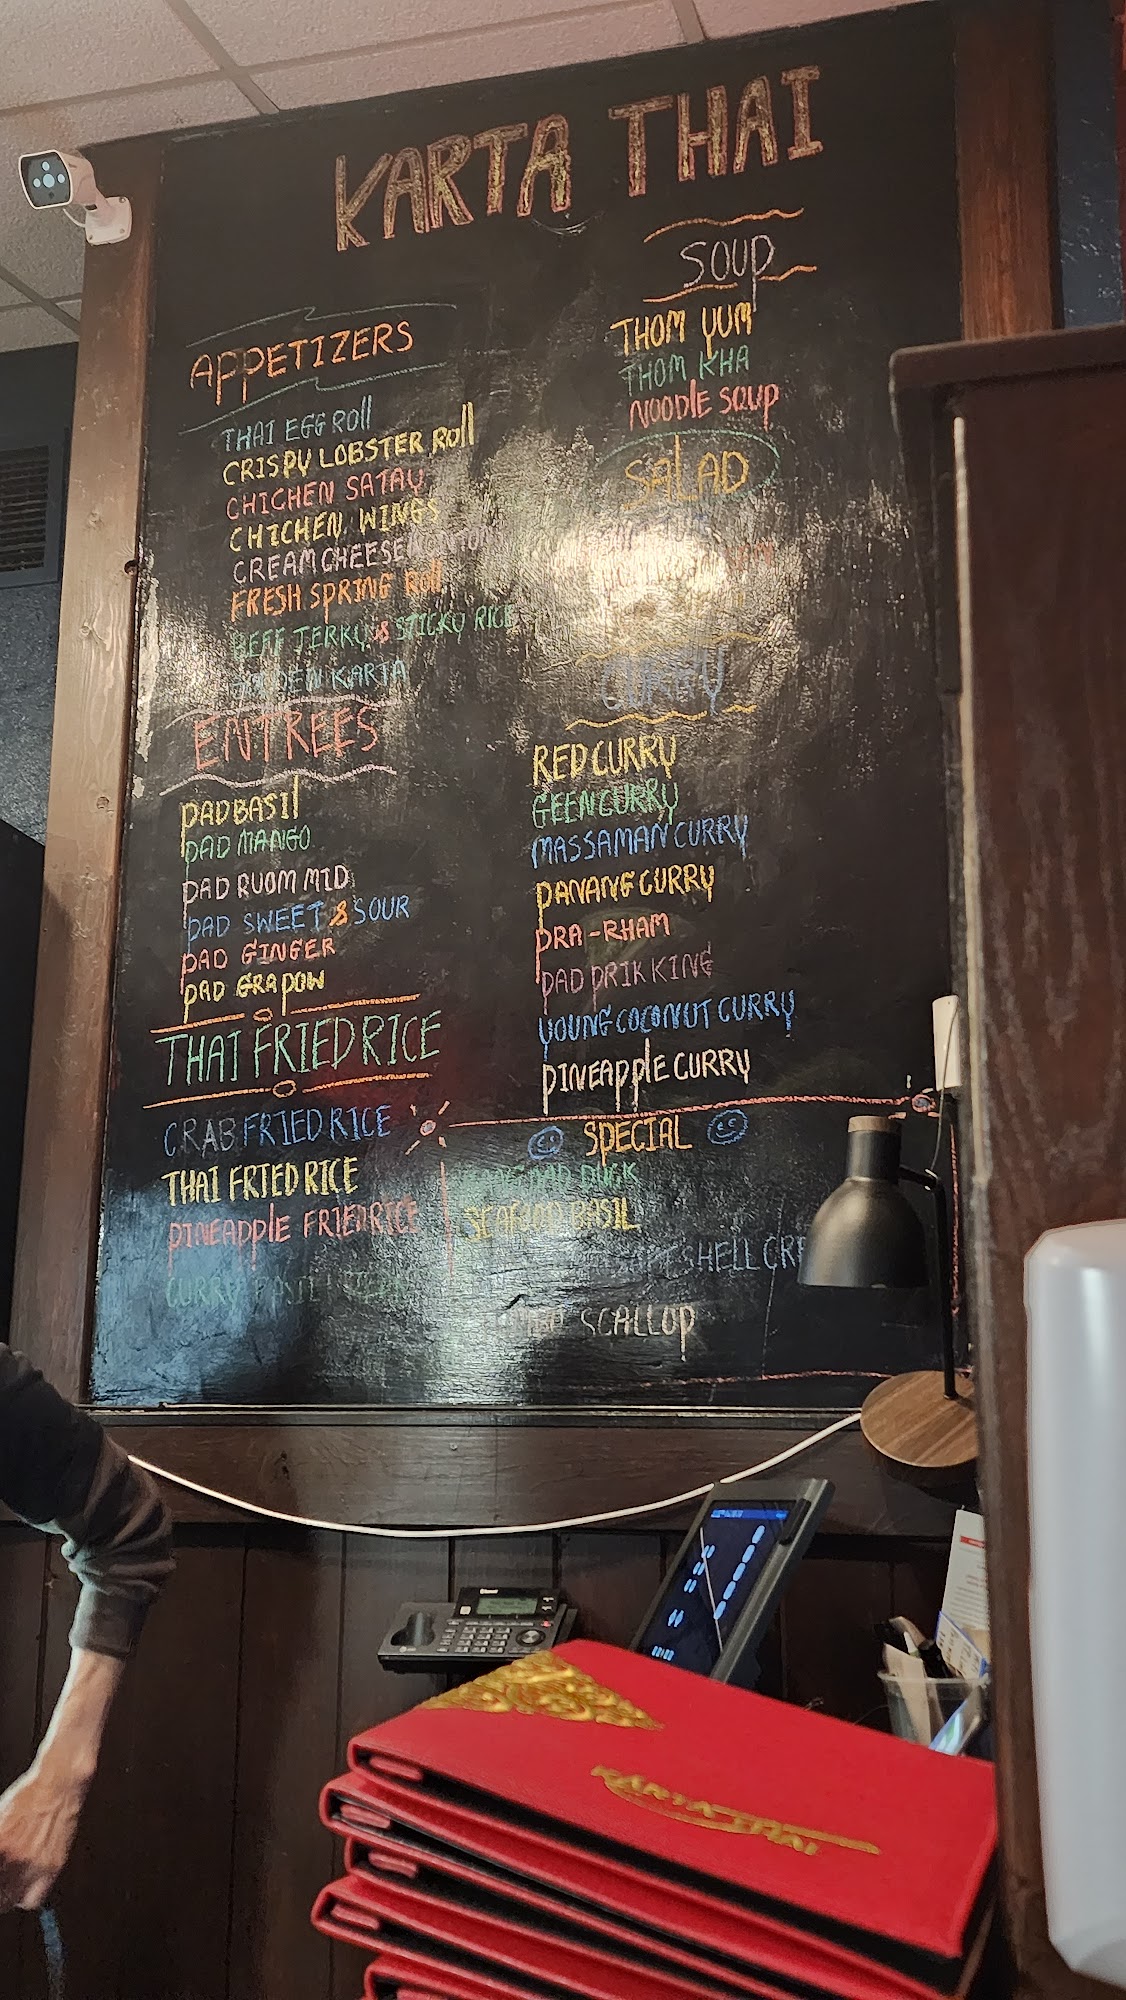 KARTA THAI
APPETIZERS
THAI EGG Roll
CRISPY LOBSTER Roll
CHICHEN SATAY
CHICHEN WINGS
CREAM CHEESE
FRESH SPRING Roll
BEFF JERKY & STICKY RICE
KARTA
ENTREES
PAD BASIl
PAD MANGO
PAD RUOM MID
PAD SWEET & SOUR
PAD GINGER
PAD GRAPOW
THAI FRIED RICE
CRAB FRIED RICE
THAI FRIED RICE
PINEAPPlE FRIED RICE
CURRY
SOUP
THOM YUM
THOM KHA
NOODLE SOUP
SALAD
CURRY
RED CURRY
GEEN CURRY
MASSAMAN CURRY
PANANG CURRY
PRA-RHAM
PAD PRIK KING
YOUNG COCONUT CURRY
PINEAPPlE CURRY
SPECIAL
DUCK
SEAFOOD BASIL
SHELL
SCALLOP
KARTA THAI